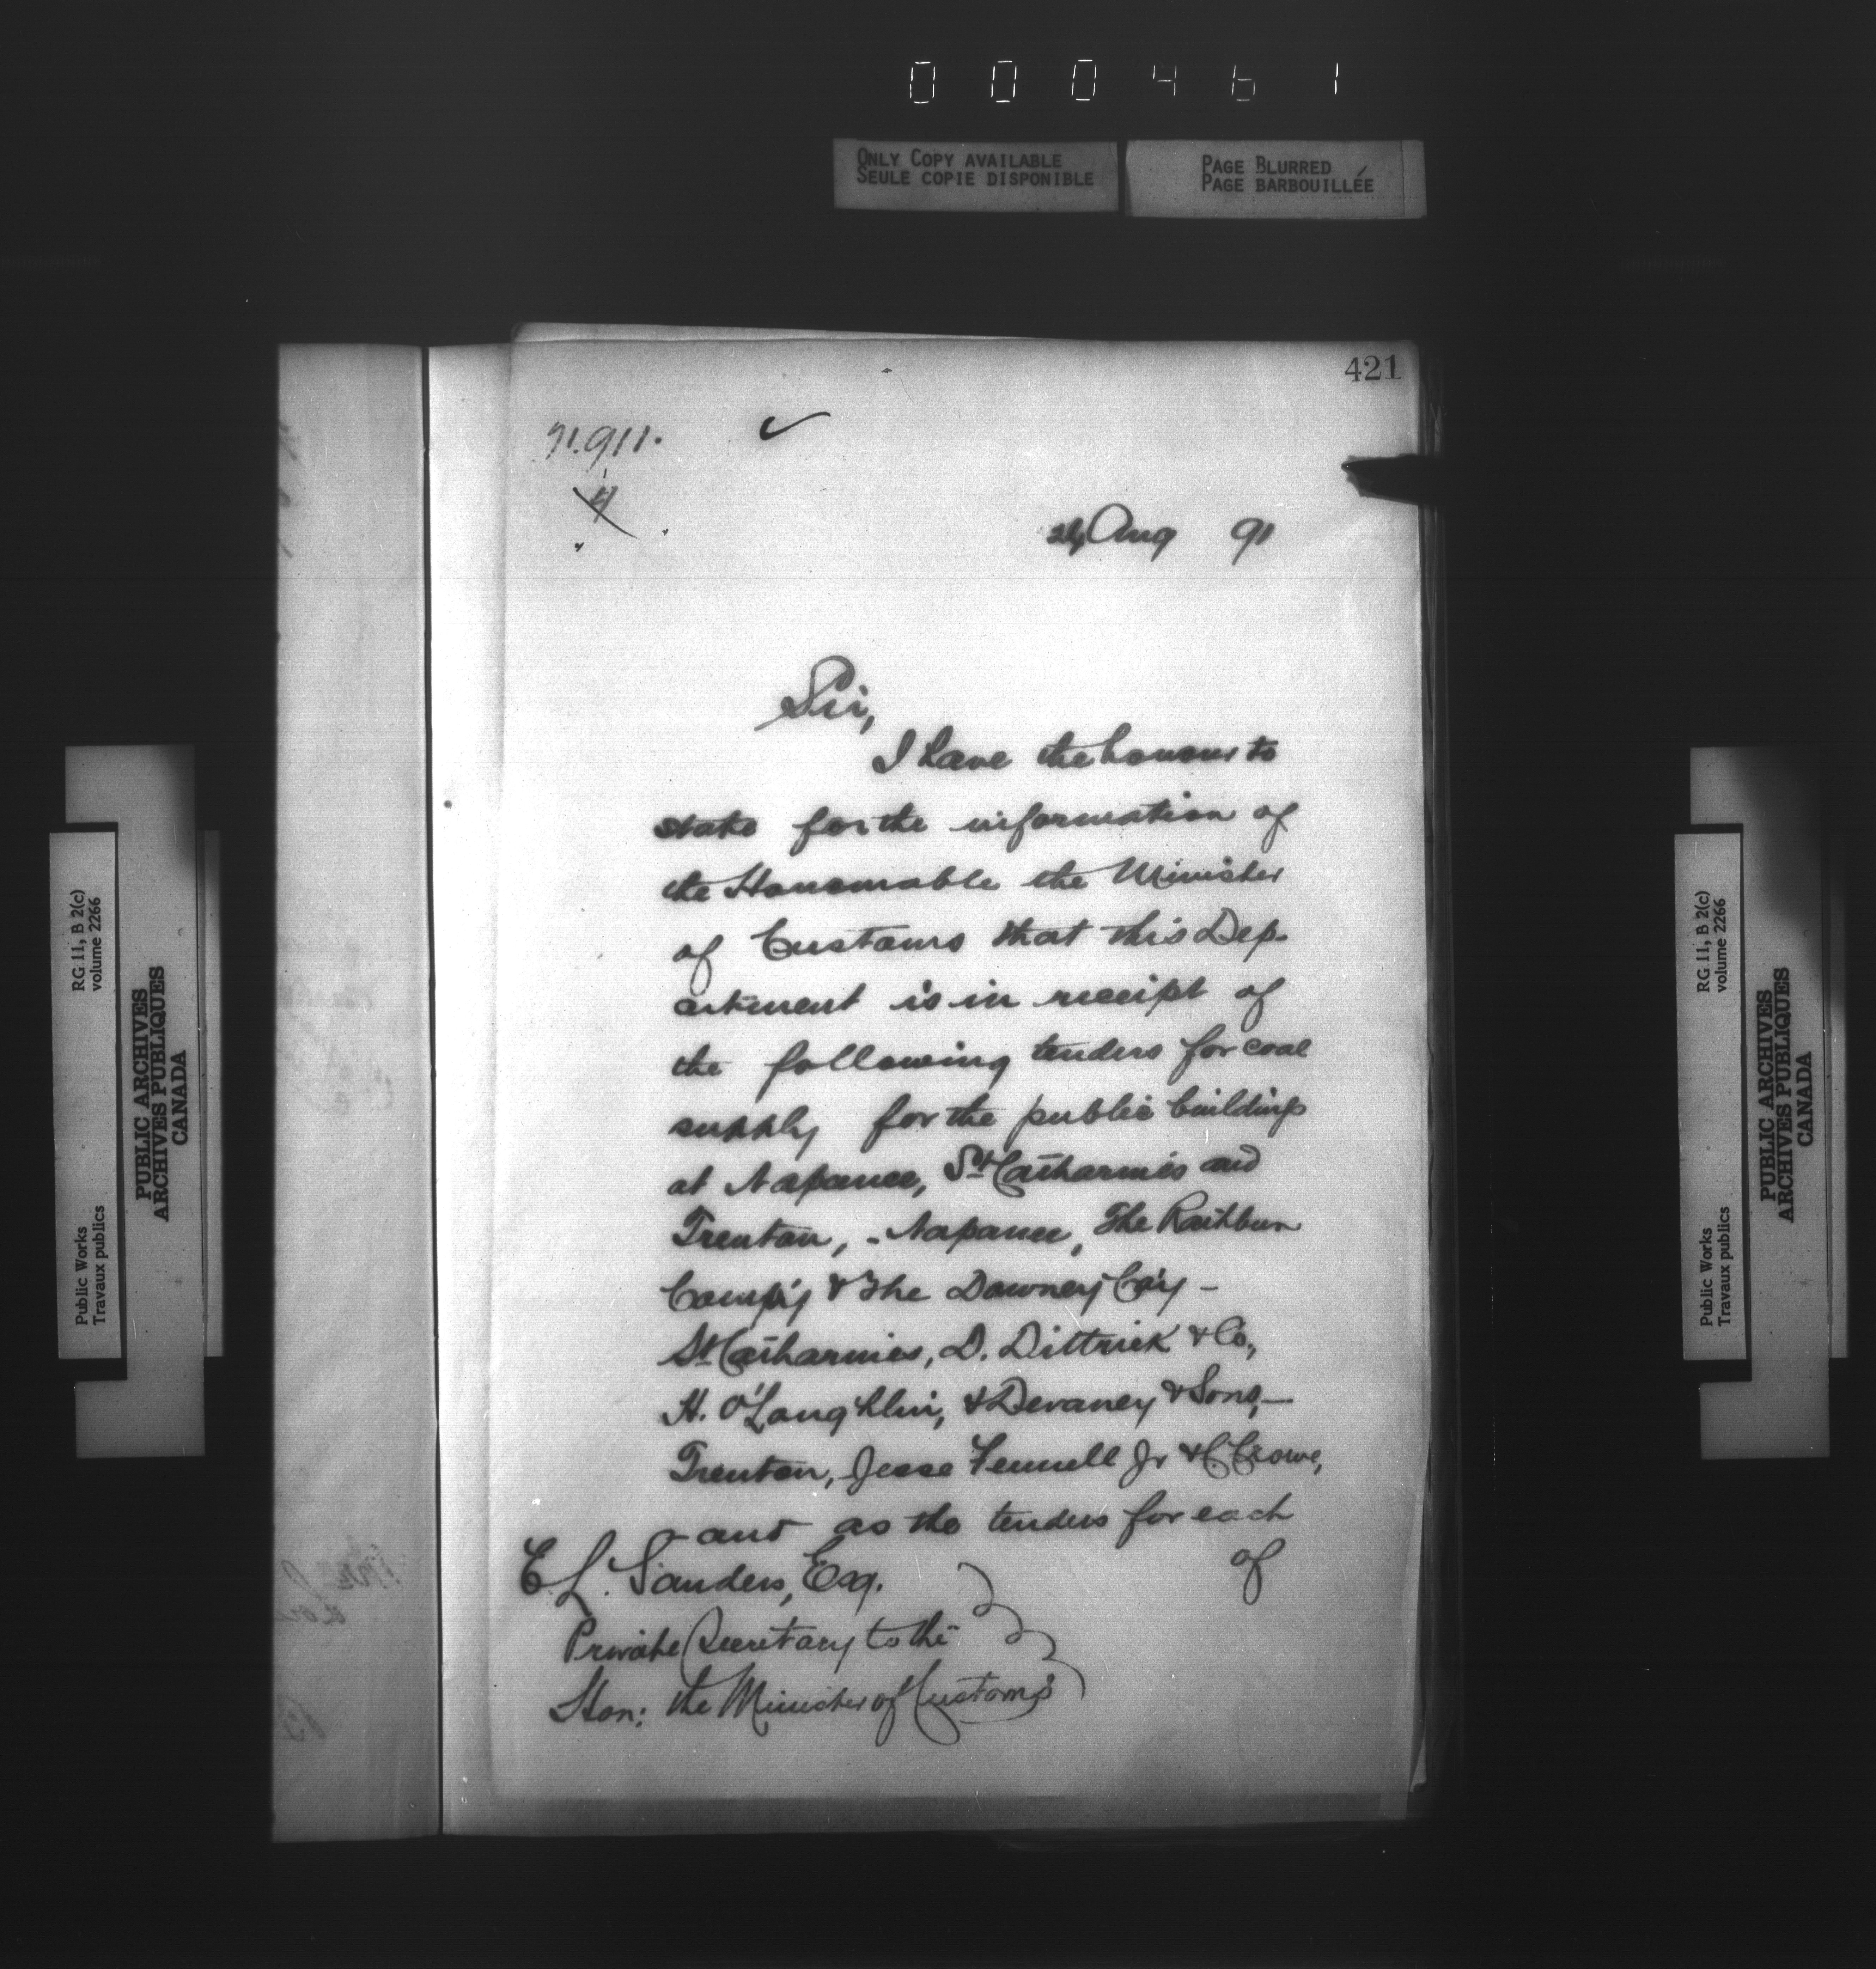 000461
ONLY COPY AVAILABLE
SEULE COPIE DISPONIBLE
PAGE BLURRED
PAGE BARBOUILLÉE
421
91.911.
4
Aug 91
Sir,
I have the honour to
state for the information of
the Honourable the Minister
of Customs that this Dep-
artment is in receipt of
the following tenders for coal
supply for the public buildings
at Napanee, St Catharines and
Trenton, - Napanee, The Rathbun
Comp'y & The Downey Co'y -
St Catharines, D. Dittrick & Co.,
H. O'Loughlin, & Devaney & Sons, -
Trenton, Jesse Fennell Jr & C Crowe,
- and as the tenders for each
of
E L. Sanders, Esq.
Private Secretary to the
Hon: the Minister of Customs
Public Works
Travaux publics
RG 11, B 2(c)
volume 2266
PUBLIC ARCHIVES
ARCHIVES PUBLIQUES
CANADA
Public Works
Travaux publics
RG 11, B 2(c)
volume 2266
PUBLIC ARCHIVES
ARCHIVES PUBLIQUES
CANADA